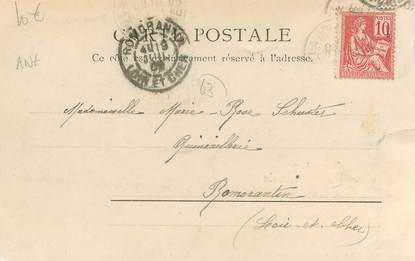 10€
ANE
CARTE POSTALE
Ce côté est exclusivement réservé à l'adresse.
ROMORANTIN
LOIR ET CHER
10
63
Mademoiselle Marie-Rose Schuster
Quincaillerie
Romorantin
(Loir-et-Cher)